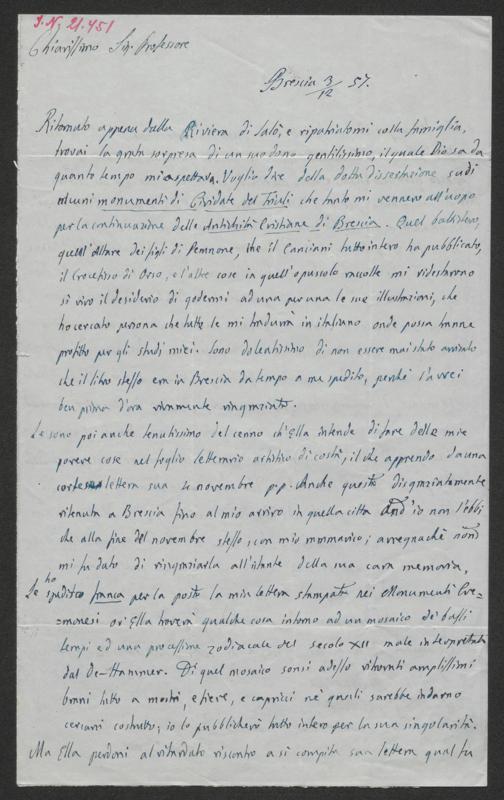 I. N. 21.451
Chiarissimo Sig. Professore
Brescia 3/12 57.
Ritornato appena dalla Riviera di Salò, e ripatriatomi colla famiglia,
trovai la grata sorpresa di un suo dono gentilissimo, il quale Dio sa da
quanto tempo mi aspettava. Voglio dire della dotta dissertazione su di
alcuni monumenti di Cividale del Friuli che tanto mi vennero all'uopo
per la continuazione delle Antichità Cristiane di Brescia. Quel battistero,
quell'Altare dei figli di Pemnone, che il Canciani tutto intero ha pubblicato,
il Crocefisso di Orso, e l'altre cose in quell'opuscolo raccolte mi ridestarono
sì vivo il desiderio di godermi ad una per una le sue illustrazioni, che
ho cercato persona che tutte le mi tradurrà in italiano onde possa trarne
profitto per gli studi miei. Sono dolentissimo di non essere mai stato avvisato
che il libro stesso era in Brescia da tempo a me spedito, perché l'avrei
ben prima d'ora vivamente ringraziato.
Le sono poi anche tenutissimo del cenno ch'Ella intende di fare delle mie
povere cose nel foglio letterario artistico di costà, il che apprendo da una
cortese lettera sua 4 novembre p.p. Anche questa disgraziatamente
ritenuta a Brescia fino al mio arrivo in quella città ond'io non l'ebbi
che alla fine del novembre stesso, con mio rammarico; avvegnachè non
mi fu dato di ringraziarla all'istante della sua cara memoria,
Le ho spedito franca per la posta la mia lettera stampata nei Monumenti Cre=
=monesi ov'Ella troverà qualche cosa intorno ad un mosaico de' bassi
tempi ed una processione zodiacale del secolo XII male interpretata
dal De-Hammer. Di quel mosaico sonsi adesso ritrovati amplissimi
brani tutto a mostri, e fiere, e capricci ne' quali sarebbe indarno
cercarvi costrutto; io lo pubblicherò tutto intero per la sua singolarità.
Ma Ella perdoni al ritardato riscontro a sì compita sua lettera qual fu